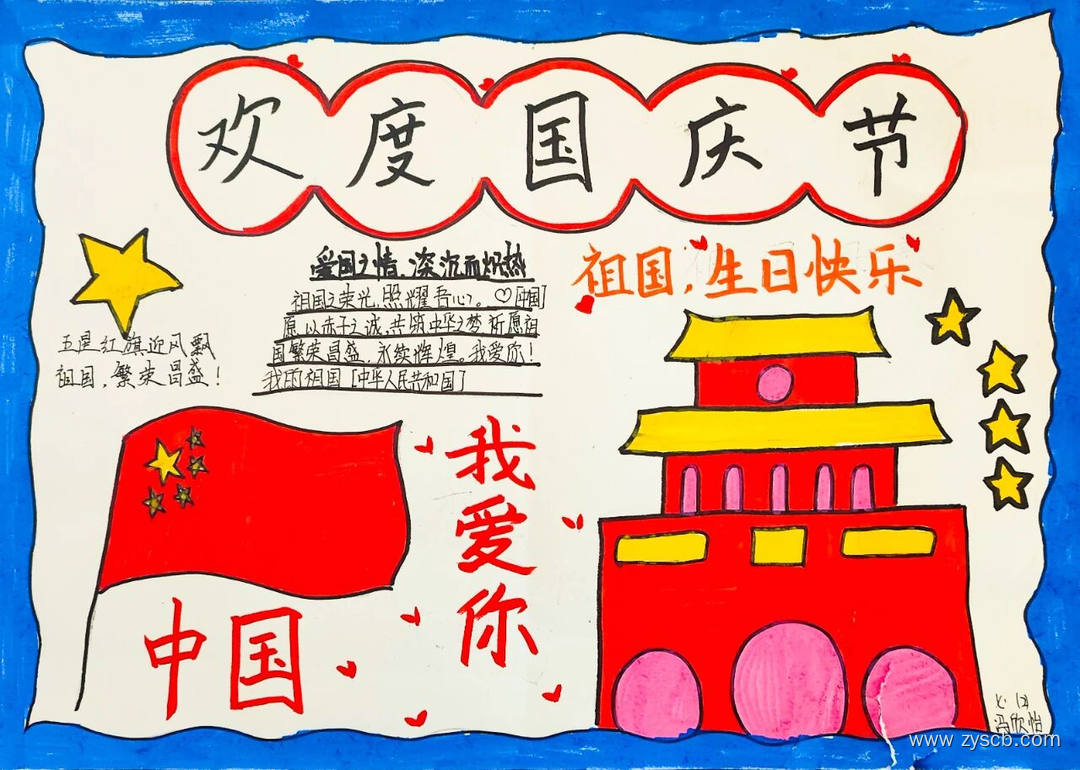 欢度国庆节
爱国之情,深沉而炽热
祖国之荣光,照耀吾心。♡[中国]
原,以赤子之诚,共筑中华之梦,祈愿祖
国繁荣昌盛,永续辉煌。我爱你!
我的祖国[中华人民共和国]
祖国,生日快乐
五星红旗迎风飘
祖国,繁荣昌盛!
我爱你
中国
冯欣怡
www.zyscb.com